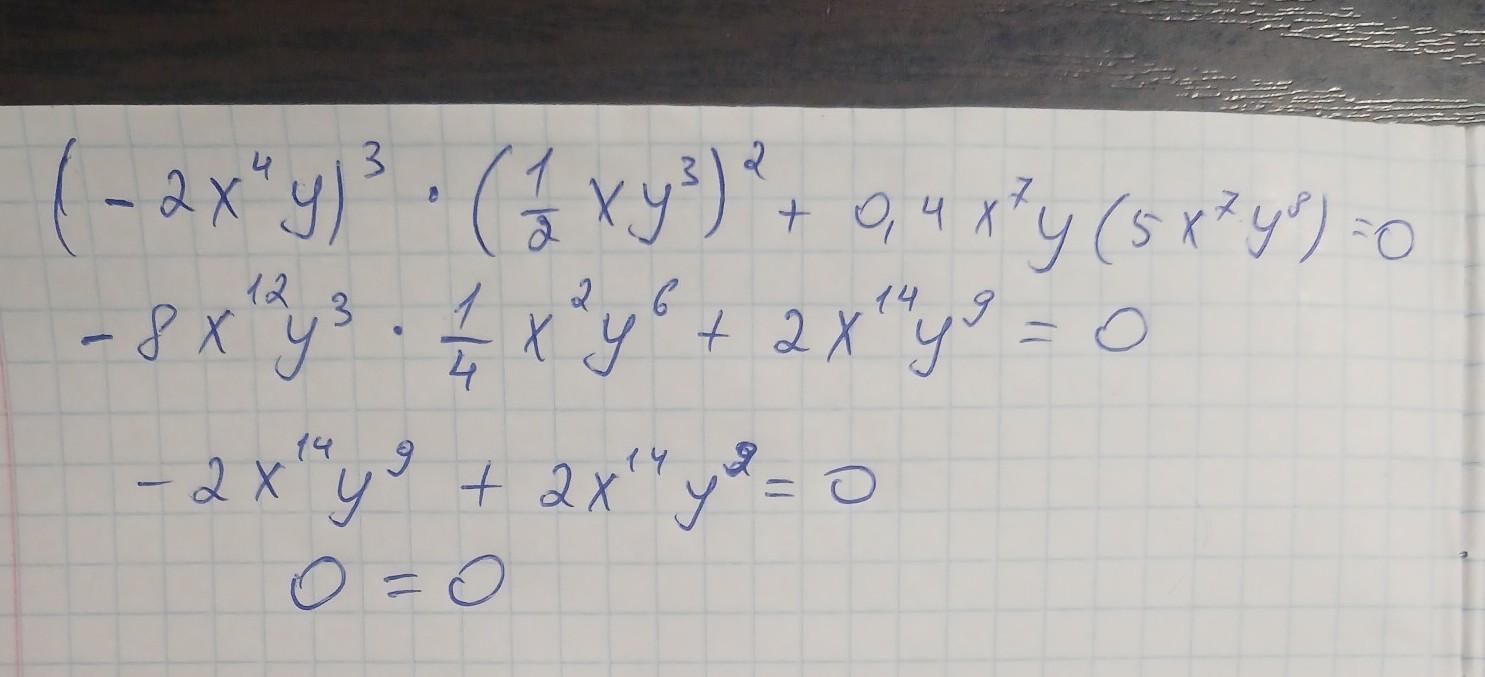 (-2x⁴y)³ · (1/2 xy³)² + 0,4x⁷y(5x⁷y⁸) = 0
-8x¹²y³ · 1/4 x²y⁶ + 2x¹⁴y⁹ = 0
-2x¹⁴y⁹ + 2x¹⁴y⁹ = 0
0 = 0